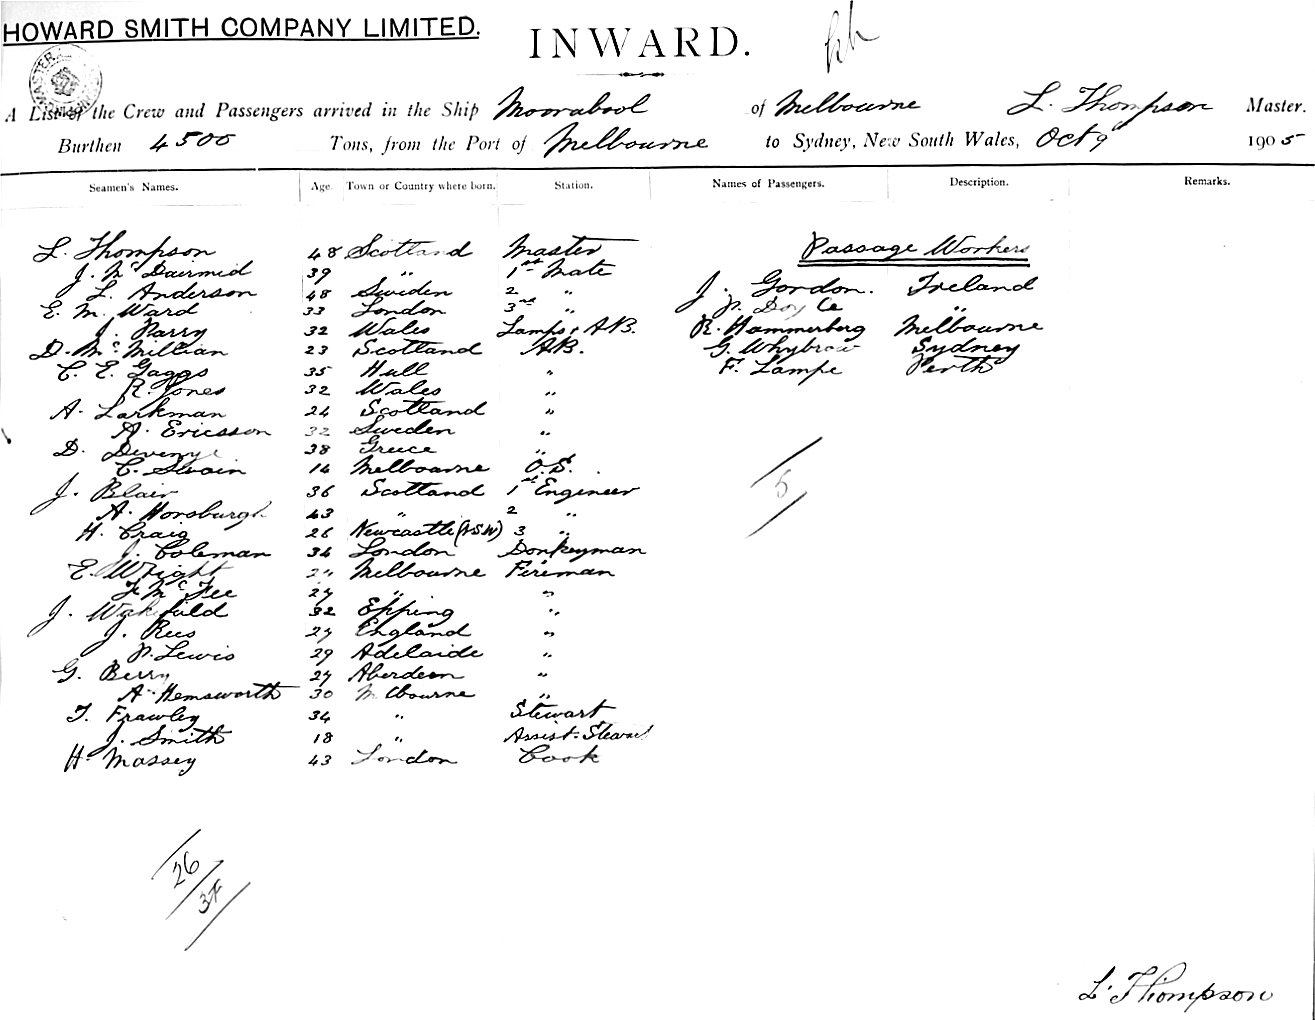 HOWARD SMITH COMPANY LIMITED.
INWARD.
A List of the Crew and Passengers arrived in the Ship Moorabool of Melbourne L. Thompson Master.
Burthen 4500 Tons, from the Port of Melbourne to Sydney, New South Wales, Oct 9 1905
Seamen's Names. Age. Town or Country where born. Station. Names of Passengers. Description. Remarks.
L. Thompson 48 Scotland Master
J. McDairmid 39 " 1st Mate
J. L. Anderson 48 Sweden 2 "
E. M. Ward 33 London 3rd "
J. Parry 32 Wales Lamps & AB.
D. McMillian 23 Scotland AB.
C. E. Gaggs 35 Hull "
R. Jones 32 Wales "
A. Larkman 24 Scotland "
A. Ericsson 32 Sweden "
D. 38 Greece "
C. Swain 16 Melbourne O.S.
J. Blair 36 Scotland 1st Engineer
A. Horsburgh 43 " 2 "
H. Craig 26 Newcastle (NSW) 3 "
J. Coleman 34 London Donkeyman
E. Wright Melbourne Fireman
F. McFee 27 " "
J. Wakefield 32 Epping "
J. Rees 27 England "
P. Lewis 29 Adelaide "
G. Berry 27 Aberdeen "
A. Hemsworth 30 Melbourne "
T. Frawley 34 " Stewart
J. Smith 18 " Assist. Steward
H. Massey 43 London Cook
Passage Workers
J. Gordon. Ireland
P. Doyle "
R. Hammerberg Melbourne
G. Whybrow Sydney
F. Lampe Perth
5
26
L. Thompson